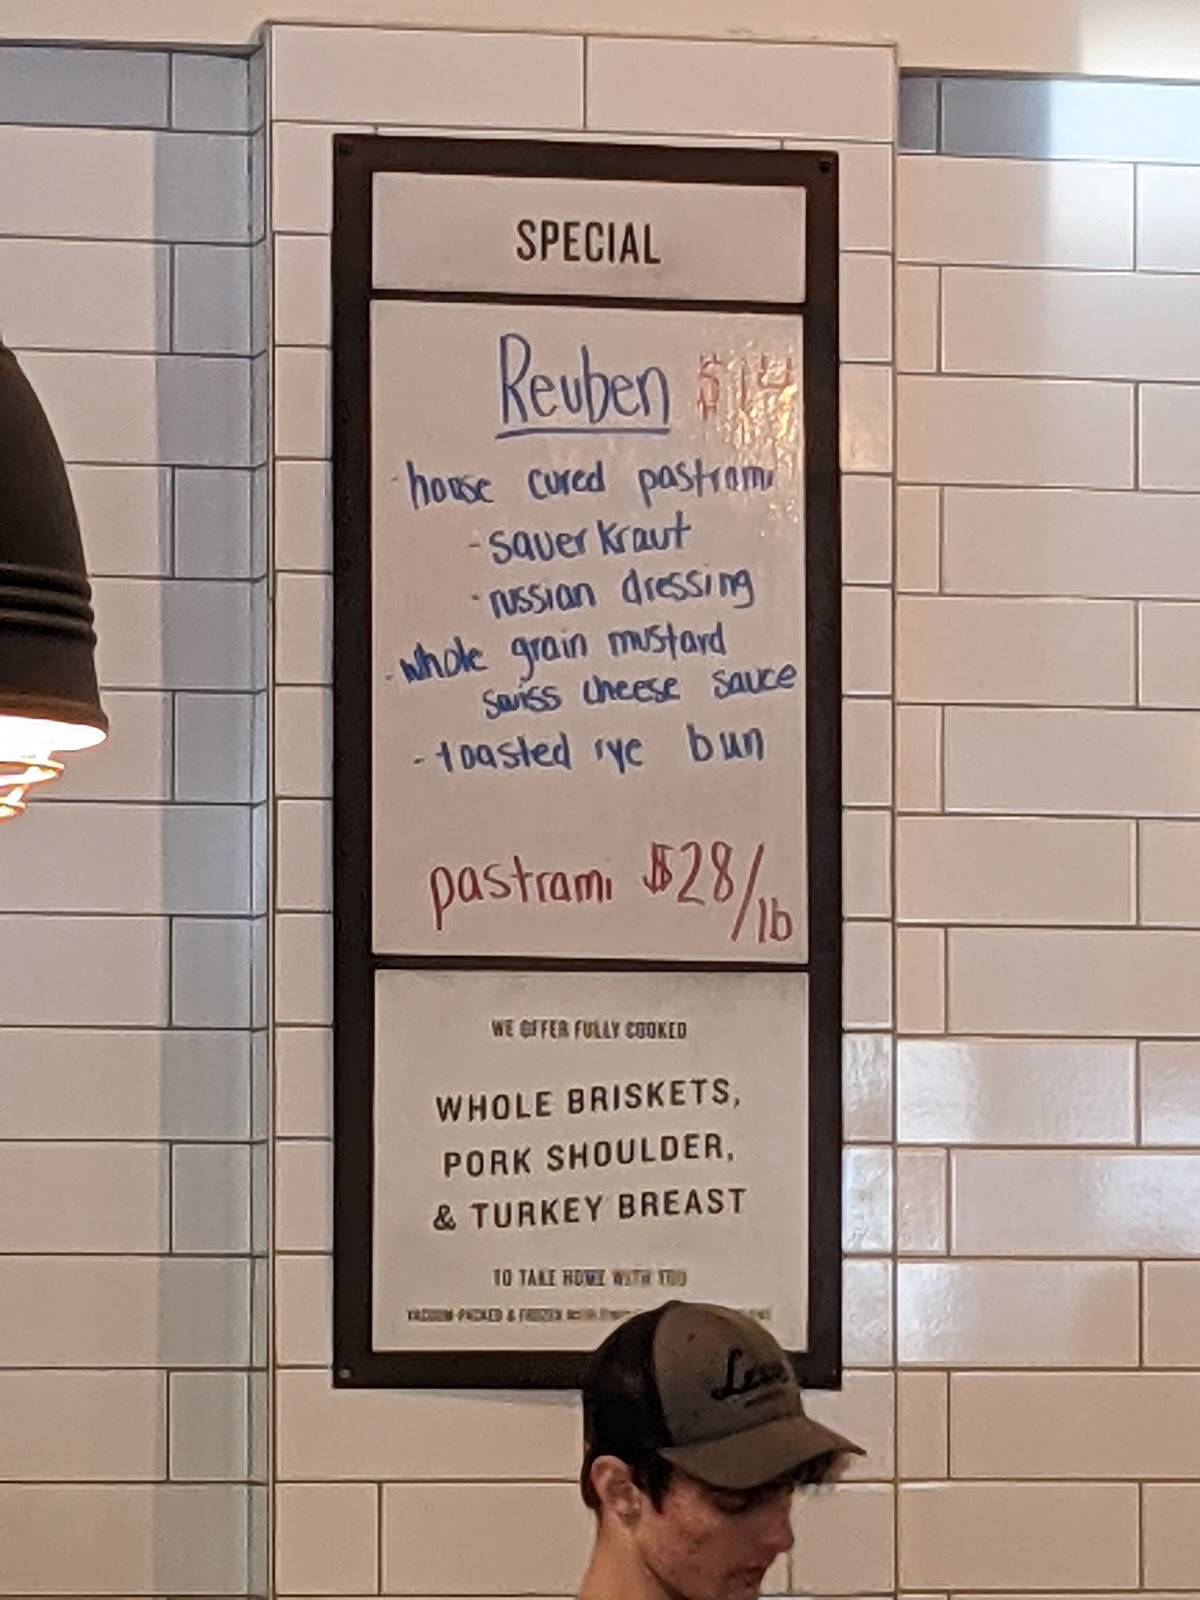 SPECIAL
Reuben $14
- house cured pastrami
- sauerkraut
- russian dressing
- whole grain mustard
swiss cheese sauce
- toasted rye bun
pastrami $28/lb
WE OFFER FULLY COOKED
WHOLE BRISKETS,
PORK SHOULDER,
& TURKEY BREAST
TO TAKE HOME WITH YOU
VACUUM-PACKED & FROZEN